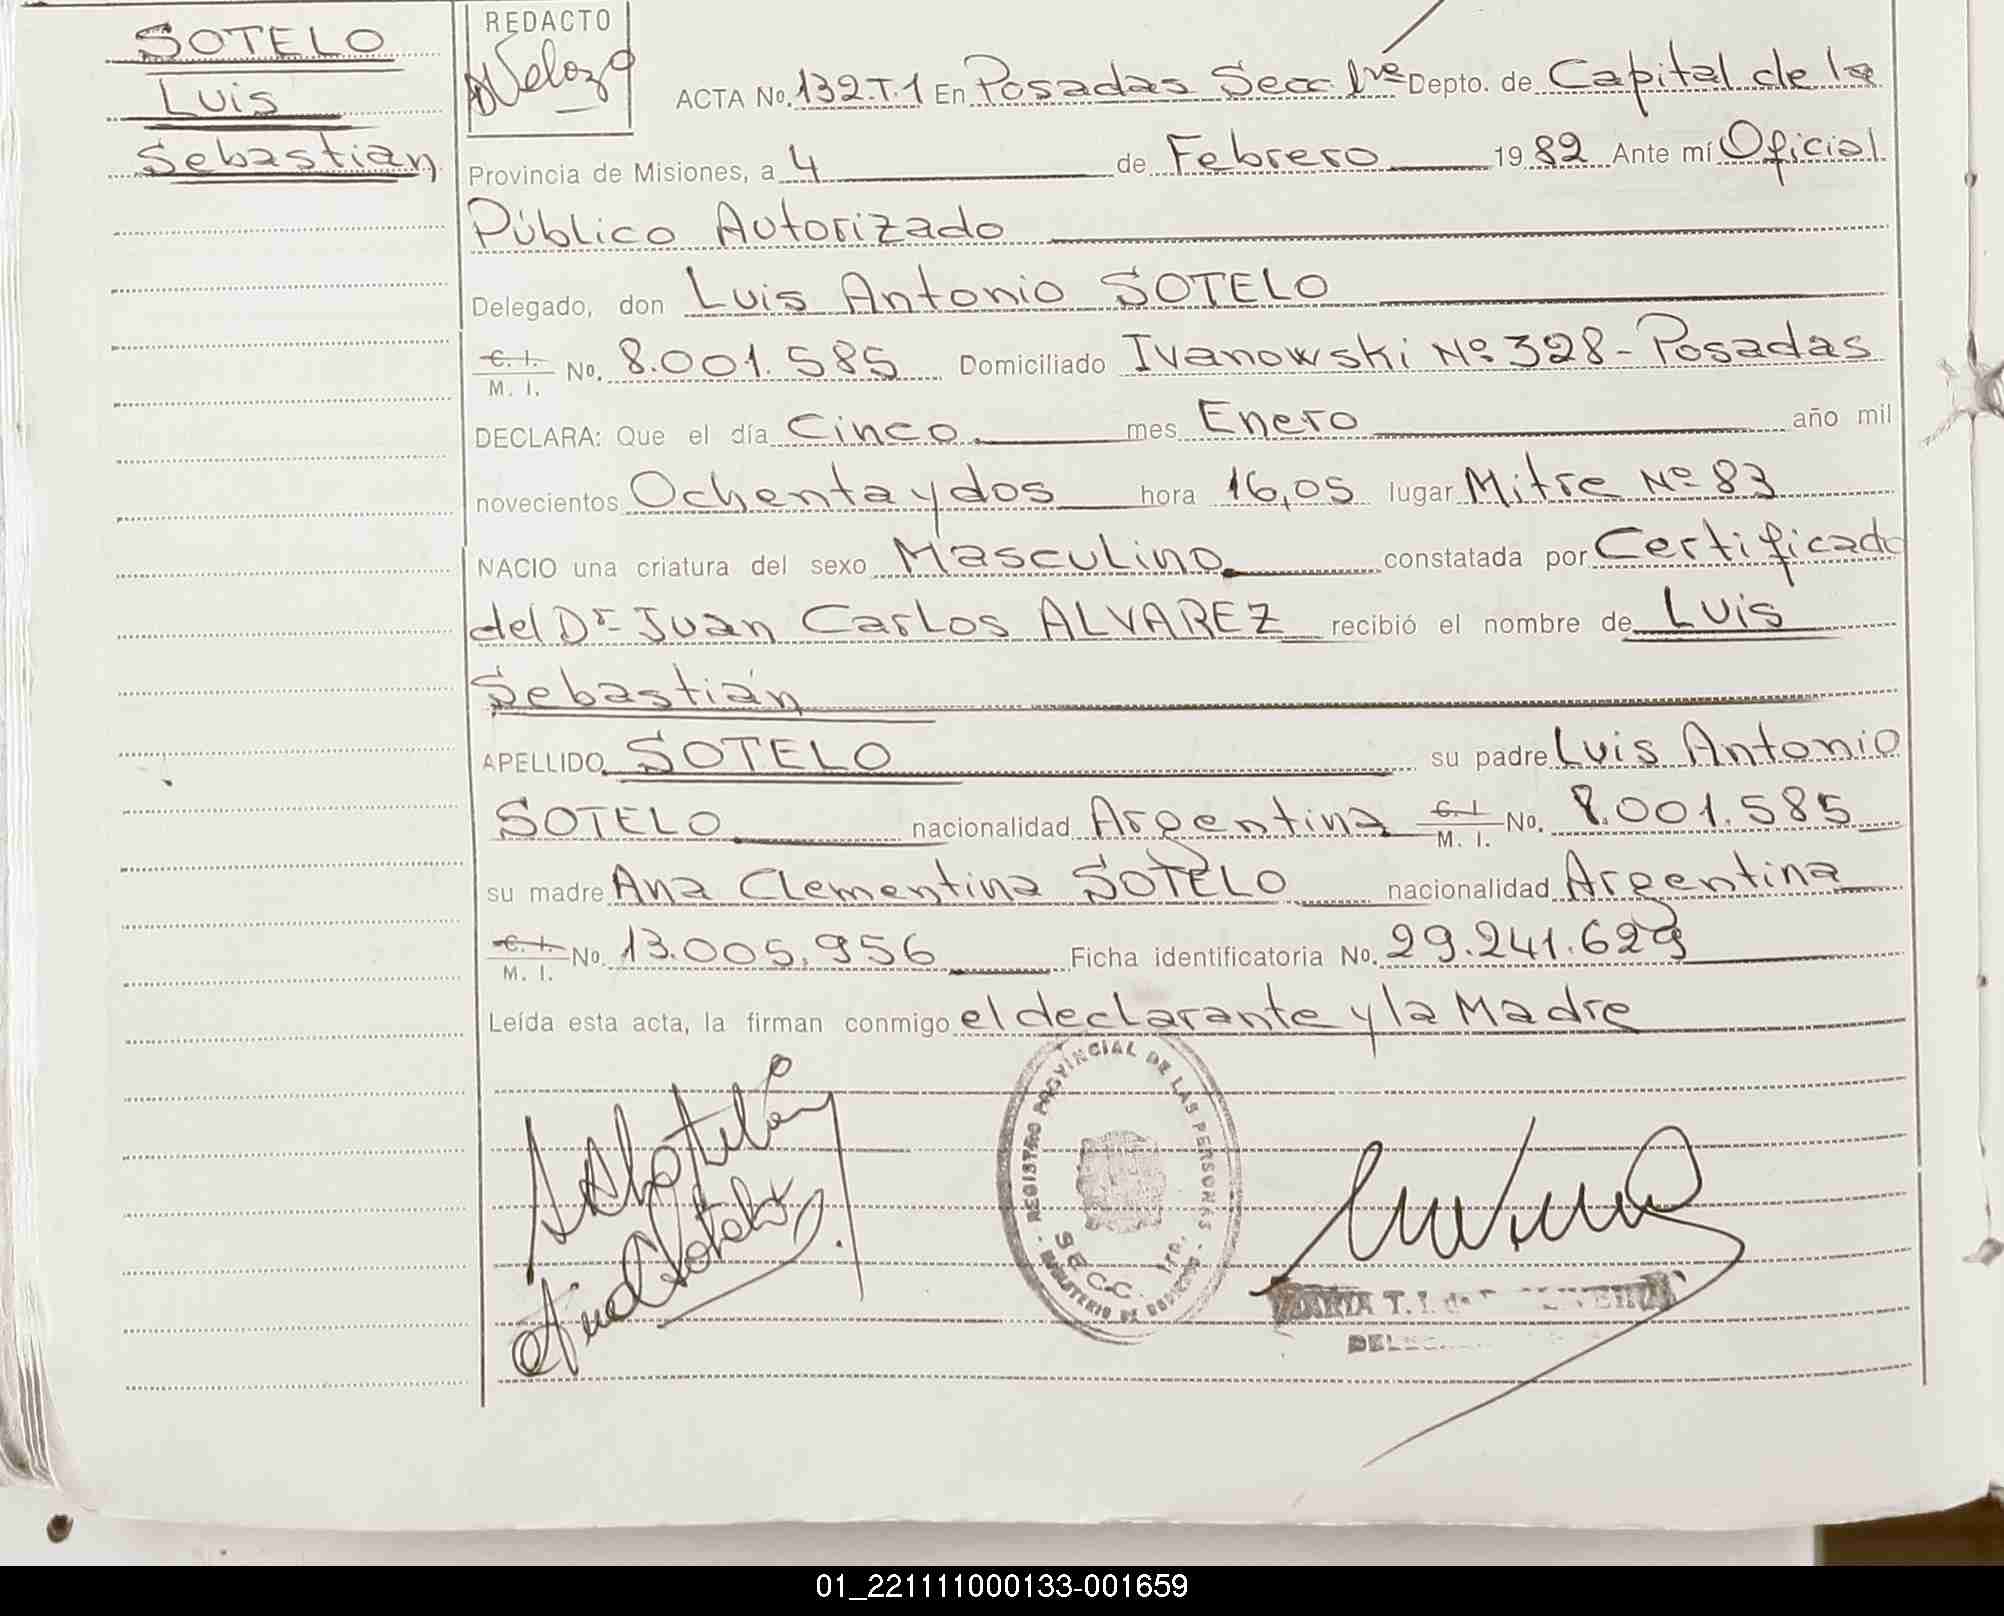 SOTELO
Luis
Sebastián
REDACTO
ACTA No. 132.T.1 En Posadas Secc. 1ra Depto. de Capital de la
Provincia de Misiones, a 4 de Febrero 1982 Ante mí Oficial
Público Autorizado
Delegado, don Luis Antonio SOTELO
C. I.
M. I. No. 8.001.585 Domiciliado Ivanowski Nº 328 - Posadas
DECLARA: Que el día Cinco mes Enero año mil
novecientos Ochenta y dos hora 16,05 lugar Mitre Nº 83
NACIO una criatura del sexo Masculino constatada por Certificado
del Dr. Juan Carlos ALVAREZ recibió el nombre de Luis
Sebastián
APELLIDO SOTELO su padre Luis Antonio
SOTELO nacionalidad Argentina C. I. M. I. No. 8.001.585
su madre Ana Clementina SOTELO nacionalidad Argentina
C. I. M. I. No. 13.005.956 Ficha identificatoria No. 29.241.629
Leída esta acta, la firman conmigo el declarante y la Madre
REGISTRO PROVINCIAL DE LAS PERSONAS
SECC. 1ra.
MINISTERIO DE GOBIERNO
01_221111000133-001659